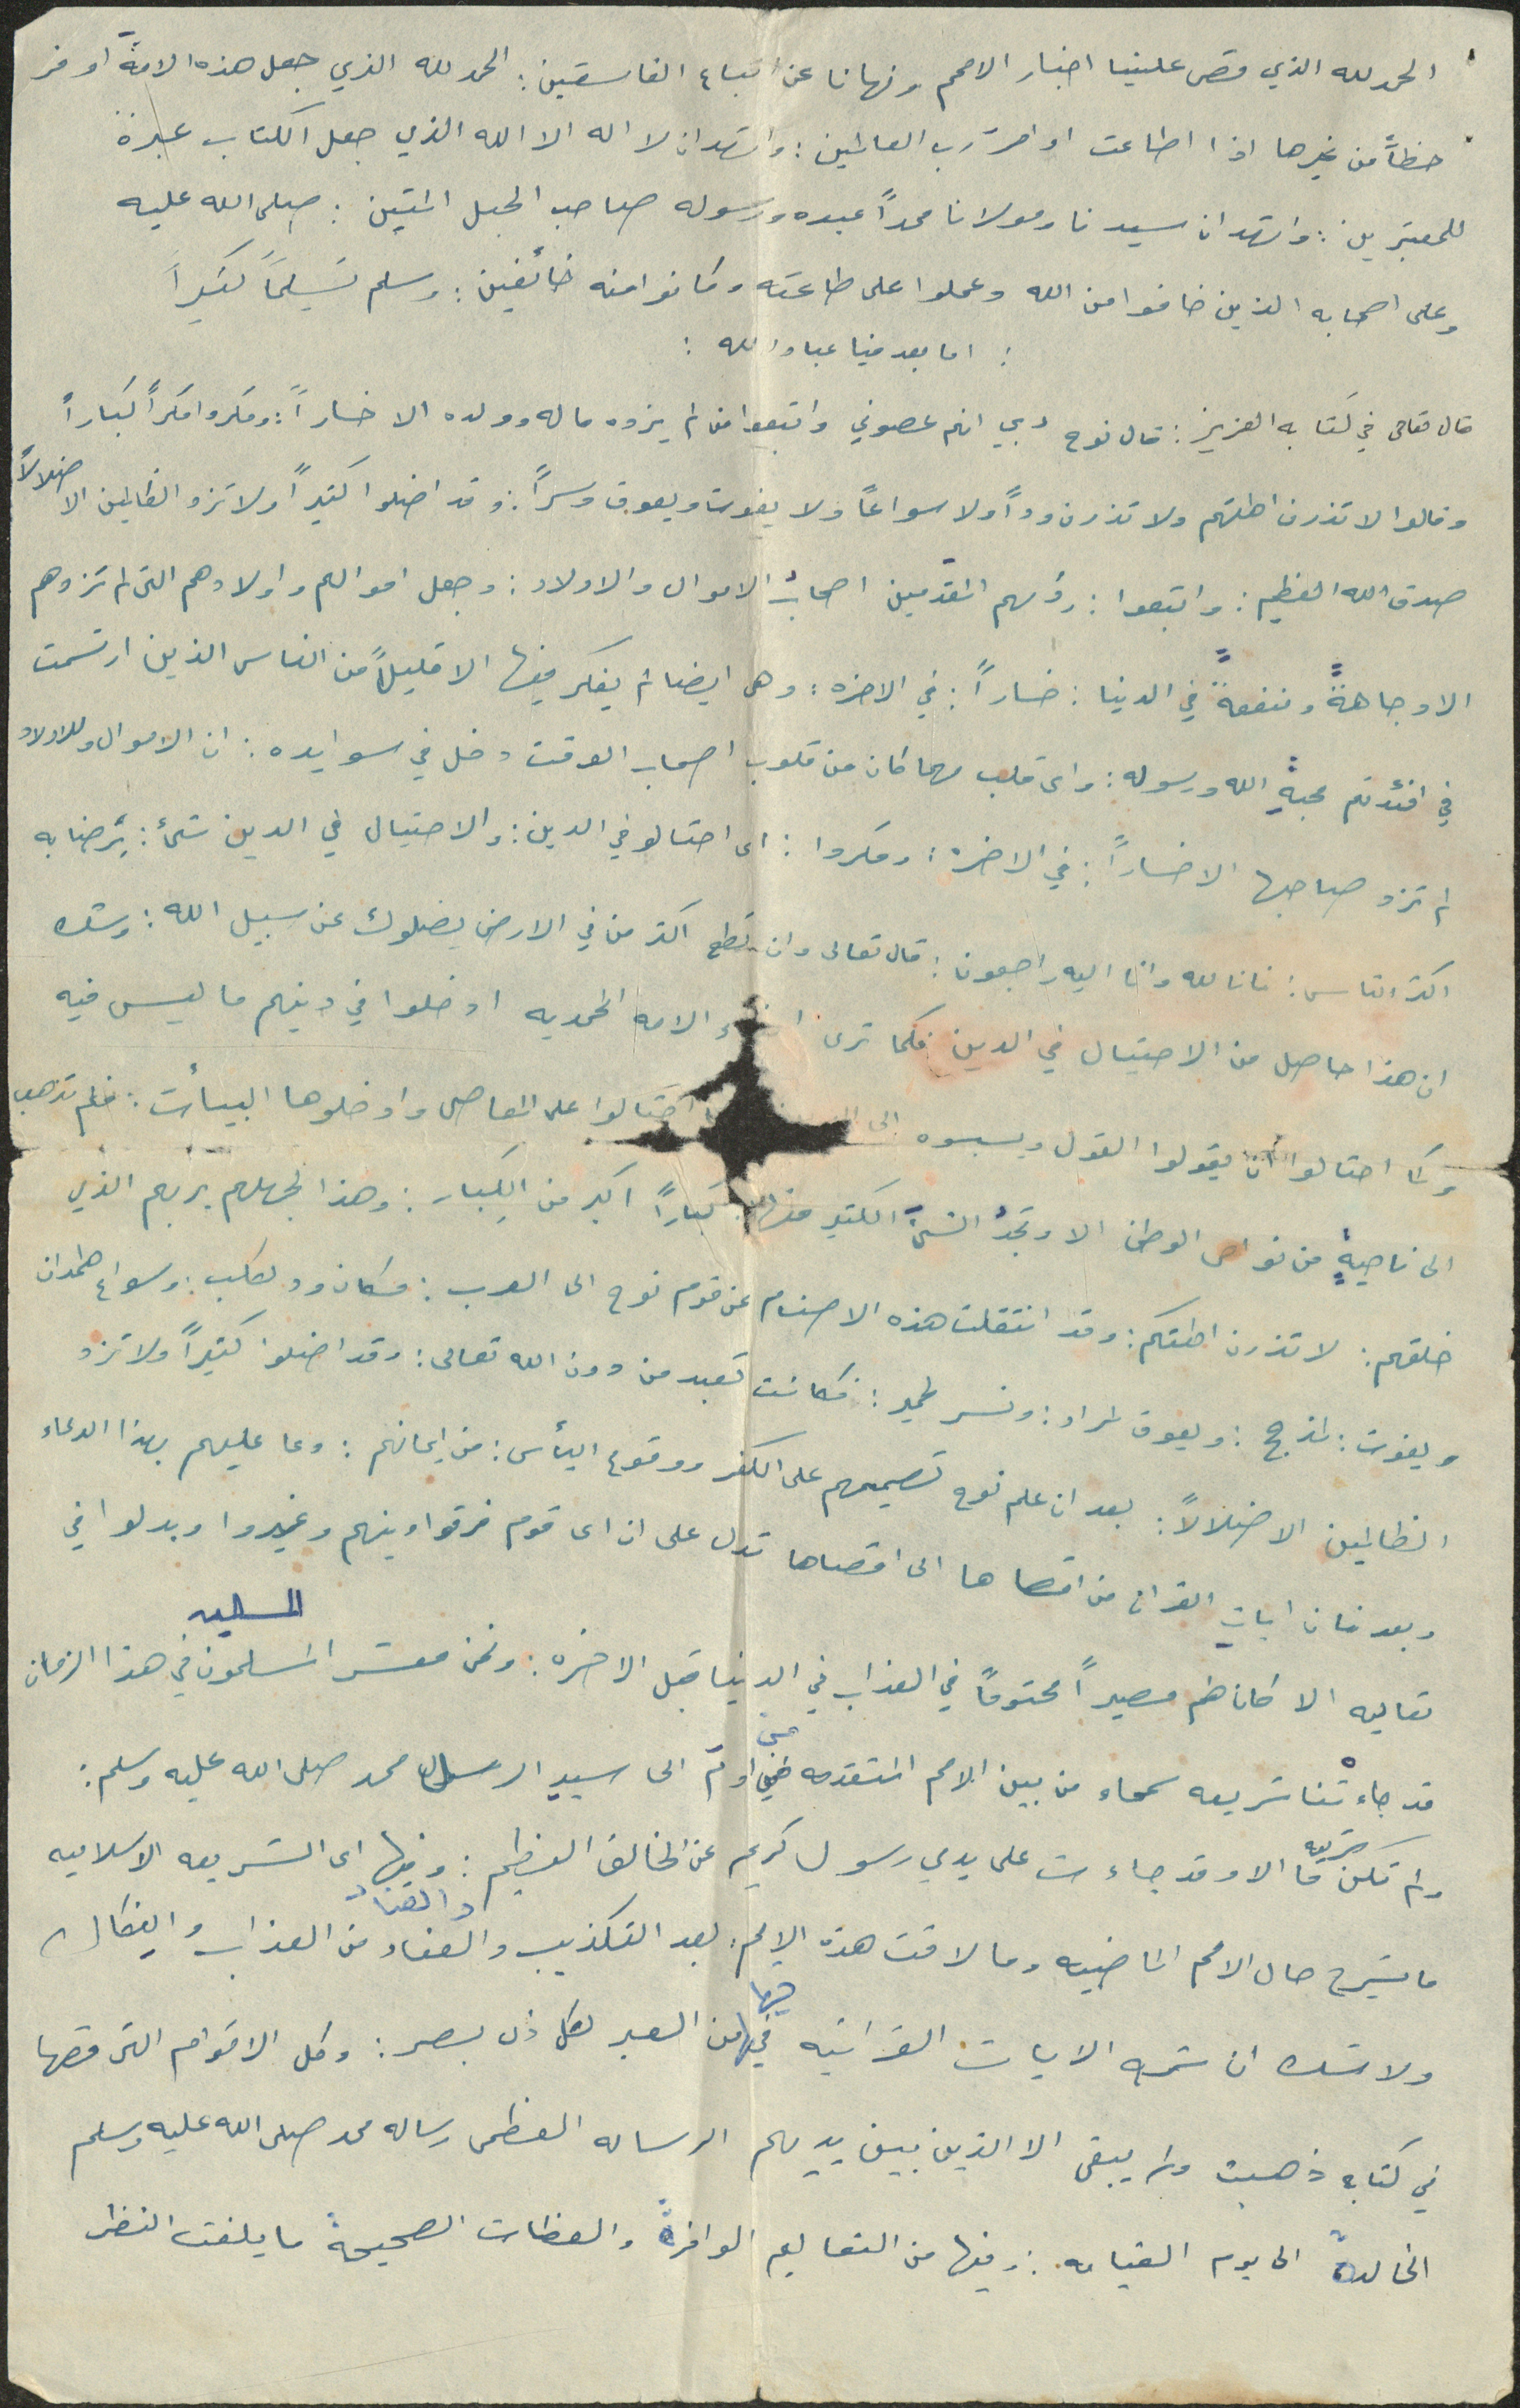 الحمد لله الذي قص علينا اخبار الامم ونهانا عن اتباع الفاسقين : الحمد لله الذي جعل هذه الامة اوفر
حظاً من غيرها اذا اطاعت اوامر رب العالمين : واشهد ان لا اله الا الله الذي جعل الكتاب عبرة
للمعتبرين : واشهد ان سيدنا ومولانا محمداً عبده ورسوله صاحب الحبل المتين : صلى الله عليه
وعلى اصحابه الذين خافوا من الله وعملوا على طاعته وكانوا منه خائفين : وسلم تسليماً كثيراً
: اما بعد فيا عباد الله :
قال تعالى في كتابه العزيز : قال نوح ربي انهم عصوني واتبعوا من لم يزده ماله وولده الا خساراً : ومكروا مكراً كباراً
وقالوا لا تذرن الهتهم ولا تذرن وداً ولا سواعاً ولا يغوث ويعوق وسراً : وقد اضلوا كثيراً ولا تزد الظالمين الا ضلالاً
صدق الله العظيم : واتبعوا : رؤسهم المتقدمين اصحاب الاموال والاولاد : وجعل اموالهم واولادهم التى لم تزدهم
الا وجاهةً ومنفعةً في الدنيا : خساراً : في الاخره : وهى ايضا لم يفكر فيها الا قليلاً من الناس الذين ارتسمت
في افئدتهم محبة الله ورسوله : واى قلب مهما كان من قلوب اصحاب الوقت دخل في سوايده : ان الاموال وللاولاد
لم تزد صاحبها الا خساراً : في الاخرة : ومكروا : اى احتالو في الدين : والاحتيال في الدين شئ : يرضا به
اكثر الناس : فانا لله وانا اليه راجعون : قال تعالى وان تطع اكثر من في الارض يضلوك عن سبيل الله : وشك
ان هذا حاصل من الاحتيال في الدين فكما ترى الامه المحمديه ادخلوا في دينهم ما ليس فيه
وكما احتالوا ان يقولوا القول وينسبوه الى احتالوا على المعاصى وادخلوها البيأت : فلم تذهب
الى ناحيةٍ من نواحى الوطن الا وتجد الشئ الكثير منها : كباراً اكبر من الكبار : وهذا لجهلهم بربهم الذي
خلقهم : لا تذرن الهتكم : وقد انتقلت هذه الاصنام عن قوم نوح الى العرب : فكان ود لكلب : وسواع لهمدان
ويغوث : لمذحج : ويعوق لمراد : ونسر لحمير : فكانت تعبد من دون الله تعالى : وقد اضلوا كثيراً ولا تزد
الظالمين الا ضلالاً : بعد ان علم نوح تصميمهم على الكفر ووقوع اليأس : من ايمانهم : دعا عليهم بهذا الدعاء
وبعد فان ايات القران من اقصاها الى اقصاها تدل على ان اى قوم فرقوا دينهم وغيروا وبدلوا في
تعاليه الا كان لهم مصيراً محتوماً في العذاب في الدنيا قبل الاخره : ونحن معشر المسلمون المسلمين في هذا الزمان
قد جاءتنا شريعه سمحاء من بين الامم المتقدمه من ادم الى سيد الرسل محمد صلى الله عليه وسلم :
ولم تكن شريعه ما الا وقد جاءت على يدي رسول كريم عن الخالق العظيم : وفيها اى الشريعه الاسلاميه
ما يشرح حال الامم الماضيه وما لاقت هذه الامم : بعد التكذيب والعناد والعناد من العذاب والنكال
ولا شك ان شرح الايات القرانيه فيها فيها من العبر لكل ذى بصر : وكل الاقوام التى قصها
في كتابه ذهبت ولم يبقى الا الذين بين يديهم الرساله العظمى رساله محمد صلى الله عليه وسلم
الخالدة الى يوم القيامه : وفيها من التعاليم الوافرة والعظات الصحيحة ما يلفت النظر